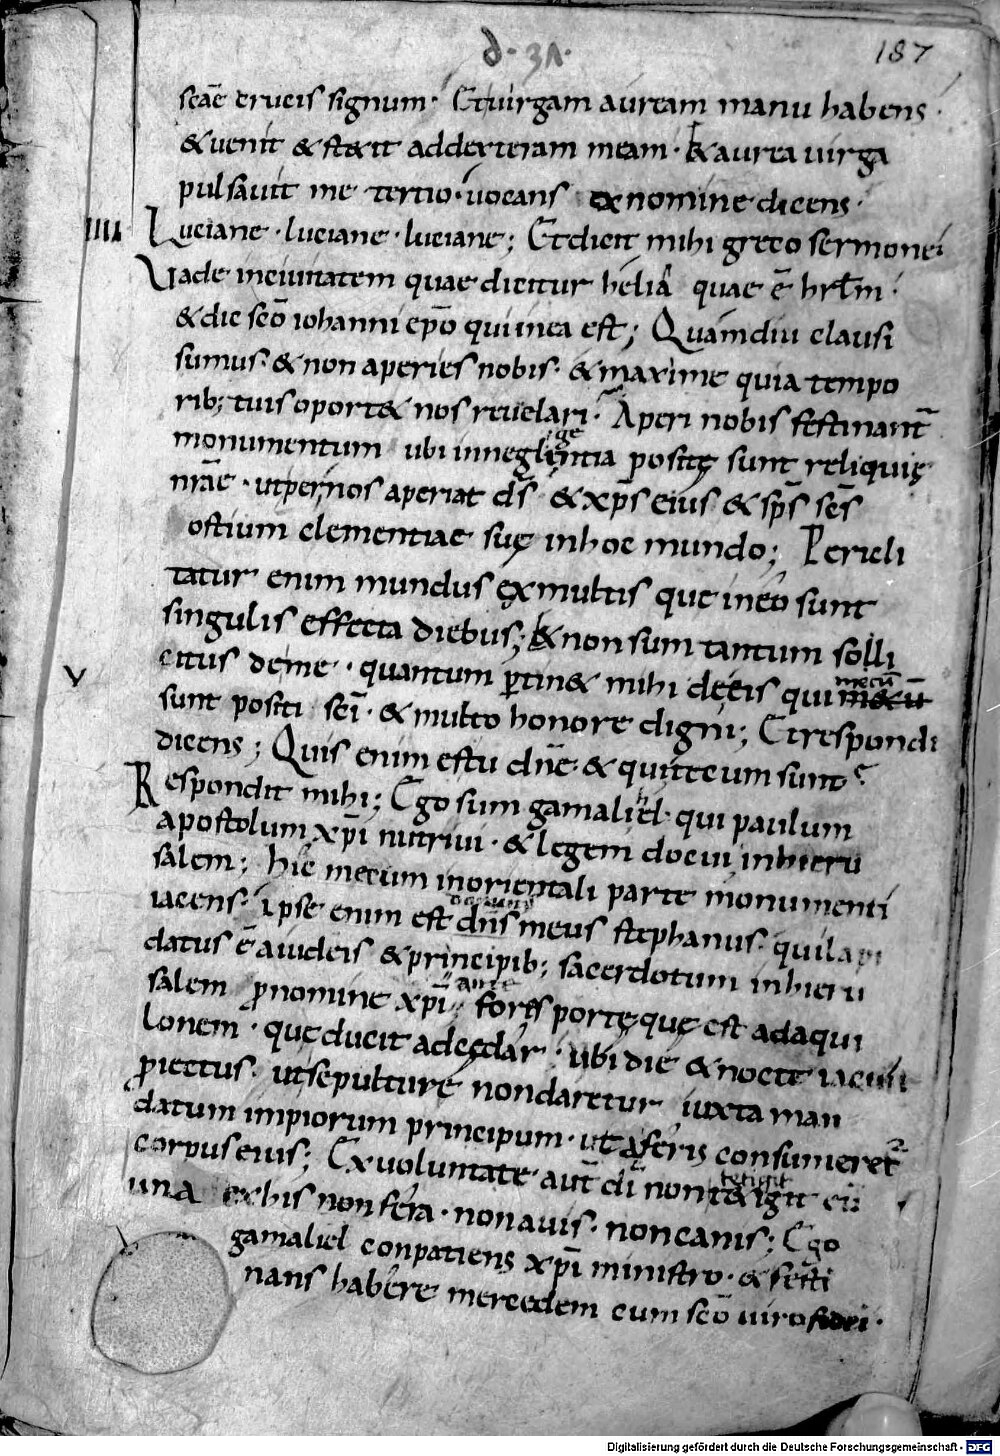 d· 31·
187
scāe crucis signum· Et uirgam auream manu habens·
& uenit & st&it ad dexteram meam· & aurea uirga
pulsauit me tertio· uocans ex nomine dicens·
IIII Luciane· luciane· luciane; Et dicit mihi greco sermone·
Uade in ciuitatem quae dicitur helia quae ē hrlm·
& dic scō iohanni epō qui in ea est; Quamdiu clausi
sumus· & non aperies nobis· & maxime quia tempo
rib; tuis oport& nos reuelari· Aperi nobis festinant̄
monumentum ubi in neglingentia positę sunt reliquię
nrāe· ut per nos aperiat d̄s & xp̄s eius & sp̄s sc̄s
ostium clementiae suę in hoc mundo; Pericli
tatur enim mundus ex multis que in eo sunt
singulis effecta diebus; & non sum tantum solli
citus de me· quantum ptin& mihi de eis qui mecū
V sunt positi sc̄i· & multo honore digni; Et respondi
dicens; Quis enim es tu dn̄e· & qui tecum sunt?
Respondit mihi; Ego sum gamalihel· qui paulum
apostolum xp̄i nutriui· & legem docui in hieru
salem; hic mecum in orientali parte monumenti
iacens· ipse enim est dn̄s meus stephanus· qui lapi
datus ē a iudeis & principib; sacerdotum in hieru
salem p nomine xp̄i· ante fores portę quę est ad aqui
lonem· quę ducit ad cędar· ubi die & nocte iacuit
piectus· ut sepulture non daretur iuxta man
datum impiorum principum· ut a feris consumeret̄
corpus eius; Ex uoluntate aut̄ dī non tetigit eū
una ex his non fera· non auis· non canis; Ego
gamaliel conpatiens xp̄i ministro· & festi
nans habere mercedem cum scō uiro fidei·
Digitalisierung gefördert durch die Deutsche Forschungsgemeinschaft - DFG